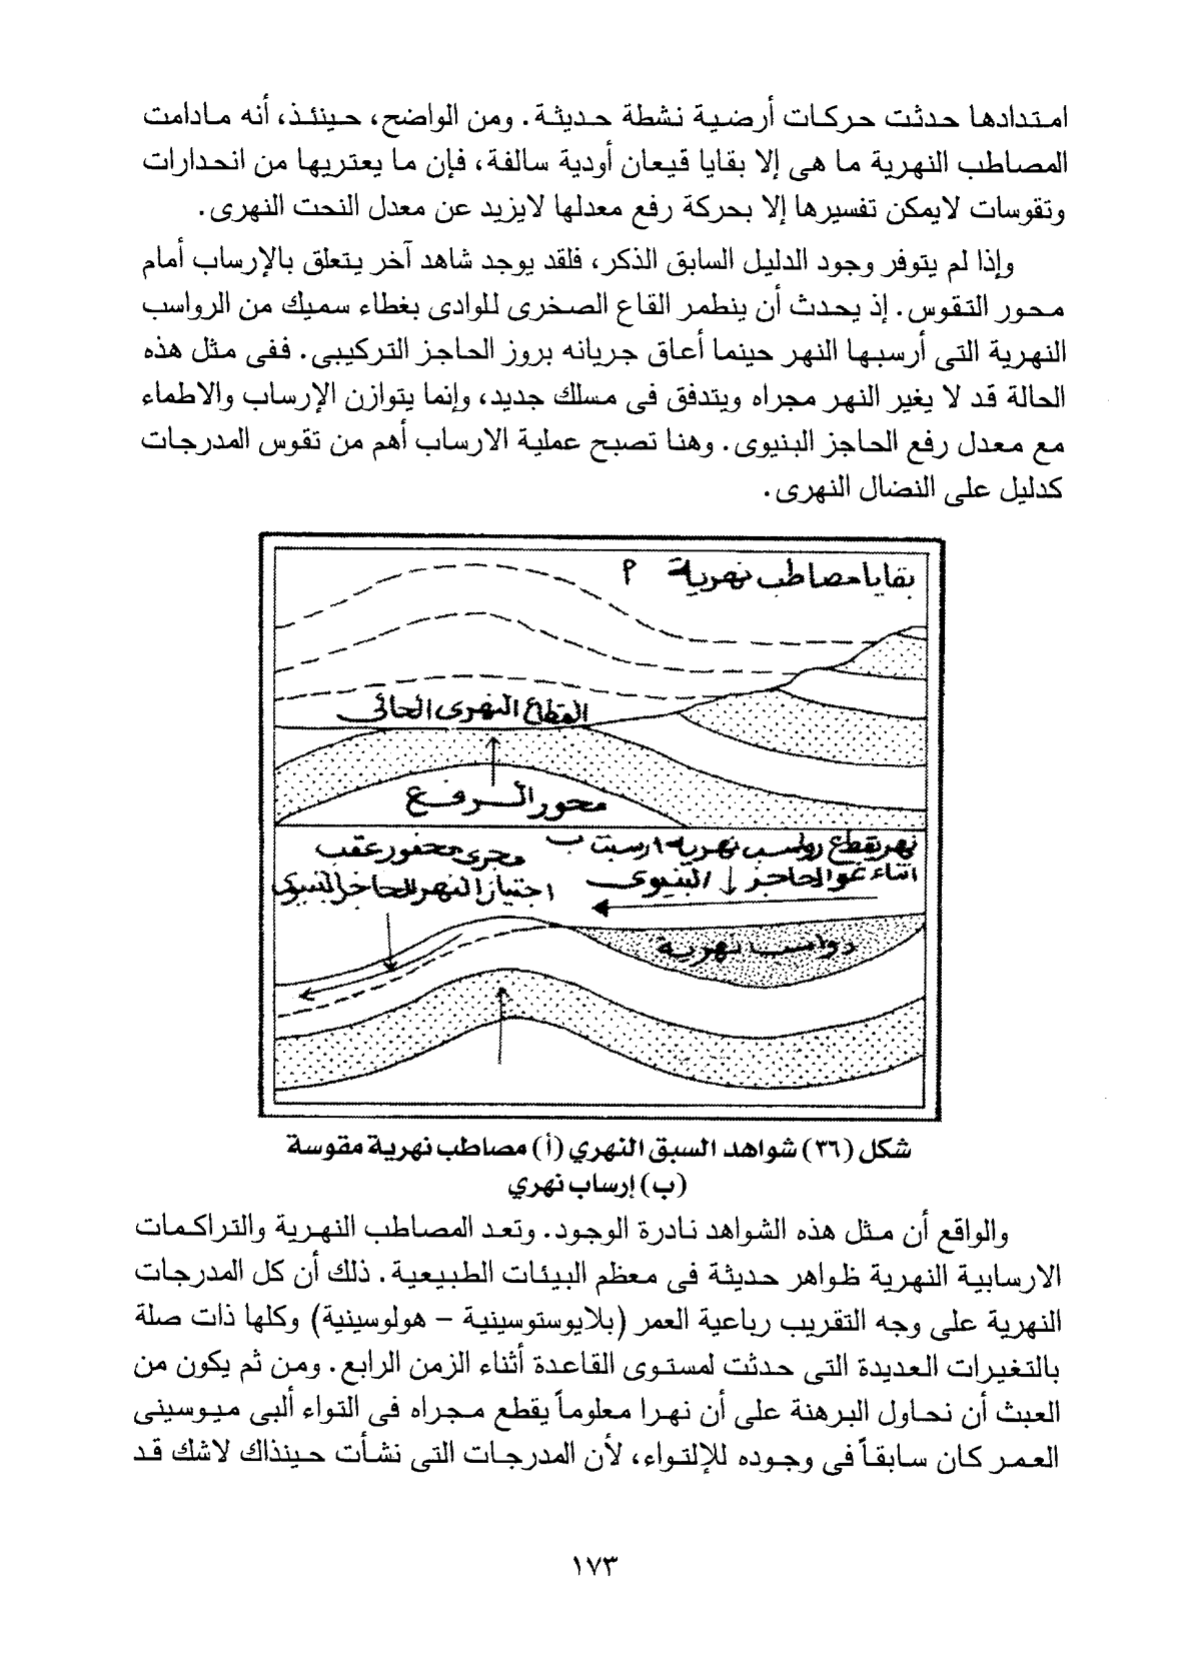 امتدادها حدثت حركات أرضية نشطة حديثة. ومن الواضح، حينئذ، أنه مادامت
المصاطب النهرية ما هى إلا بقايا قيعان أودية سالفة، فإن ما يعتريها من انحدارات
وتقوسات لايمكن تفسيرها إلا بحركة رفع معدلها لايزيد عن معدل النحت النهرى.
وإذا لم يتوفر وجود الدليل السابق الذكر، فلقد يوجد شاهد آخر يتعلق بالإرساب أمام
محور التقوس. إذ يحدث أن ينطمر القاع الصخرى للوادى بغطاء سميك من الرواسب
النهرية التى أرسبها النهر حينما أعاق جريانه بروز الحاجز التركيبى. ففى مثل هذه
الحالة قد لا يغير النهر مجراه ويتدفق فى مسلك جديد، وإنما يتوازن الإرساب والاطماء
مع معدل رفع الحاجز البنيوى. وهنا تصبح عملية الارساب أهم من تقوس المدرجات
كدليل على النضال النهرى.
بقايا مصاطب نهرية م
القطاع النهرى الحالى
محور الرفع
نهر يقطع رواسب نهرية ارسبت ب
اثناء نمو الحاجز البنيوى
مجرى محفور عقب
اجتياز النهر للحاجز البنيوى
رواسب نهرية
شكل (٣٦) شواهد السبق النهري (أ) مصاطب نهرية مقوسة
(ب) إرساب نهري
والواقع أن مثل هذه الشواهد نادرة الوجود. وتعد المصاطب النهرية والتراكمات
الارسابية النهرية ظواهر حديثة فى معظم البيئات الطبيعية. ذلك أن كل المدرجات
النهرية على وجه التقريب رباعية العمر (بلايوستوسينية – هولوسينية) وكلها ذات صلة
بالتغيرات العديدة التى حدثت لمستوى القاعدة أثناء الزمن الرابع. ومن ثم يكون من
العبث أن نحاول البرهنة على أن نهرا معلوماً يقطع مجراه فى التواء ألبى ميوسينى
العمر كان سابقاً فى وجوده للإلتواء، لأن المدرجات التى نشأت حينذاك لاشك قد
١٧٣